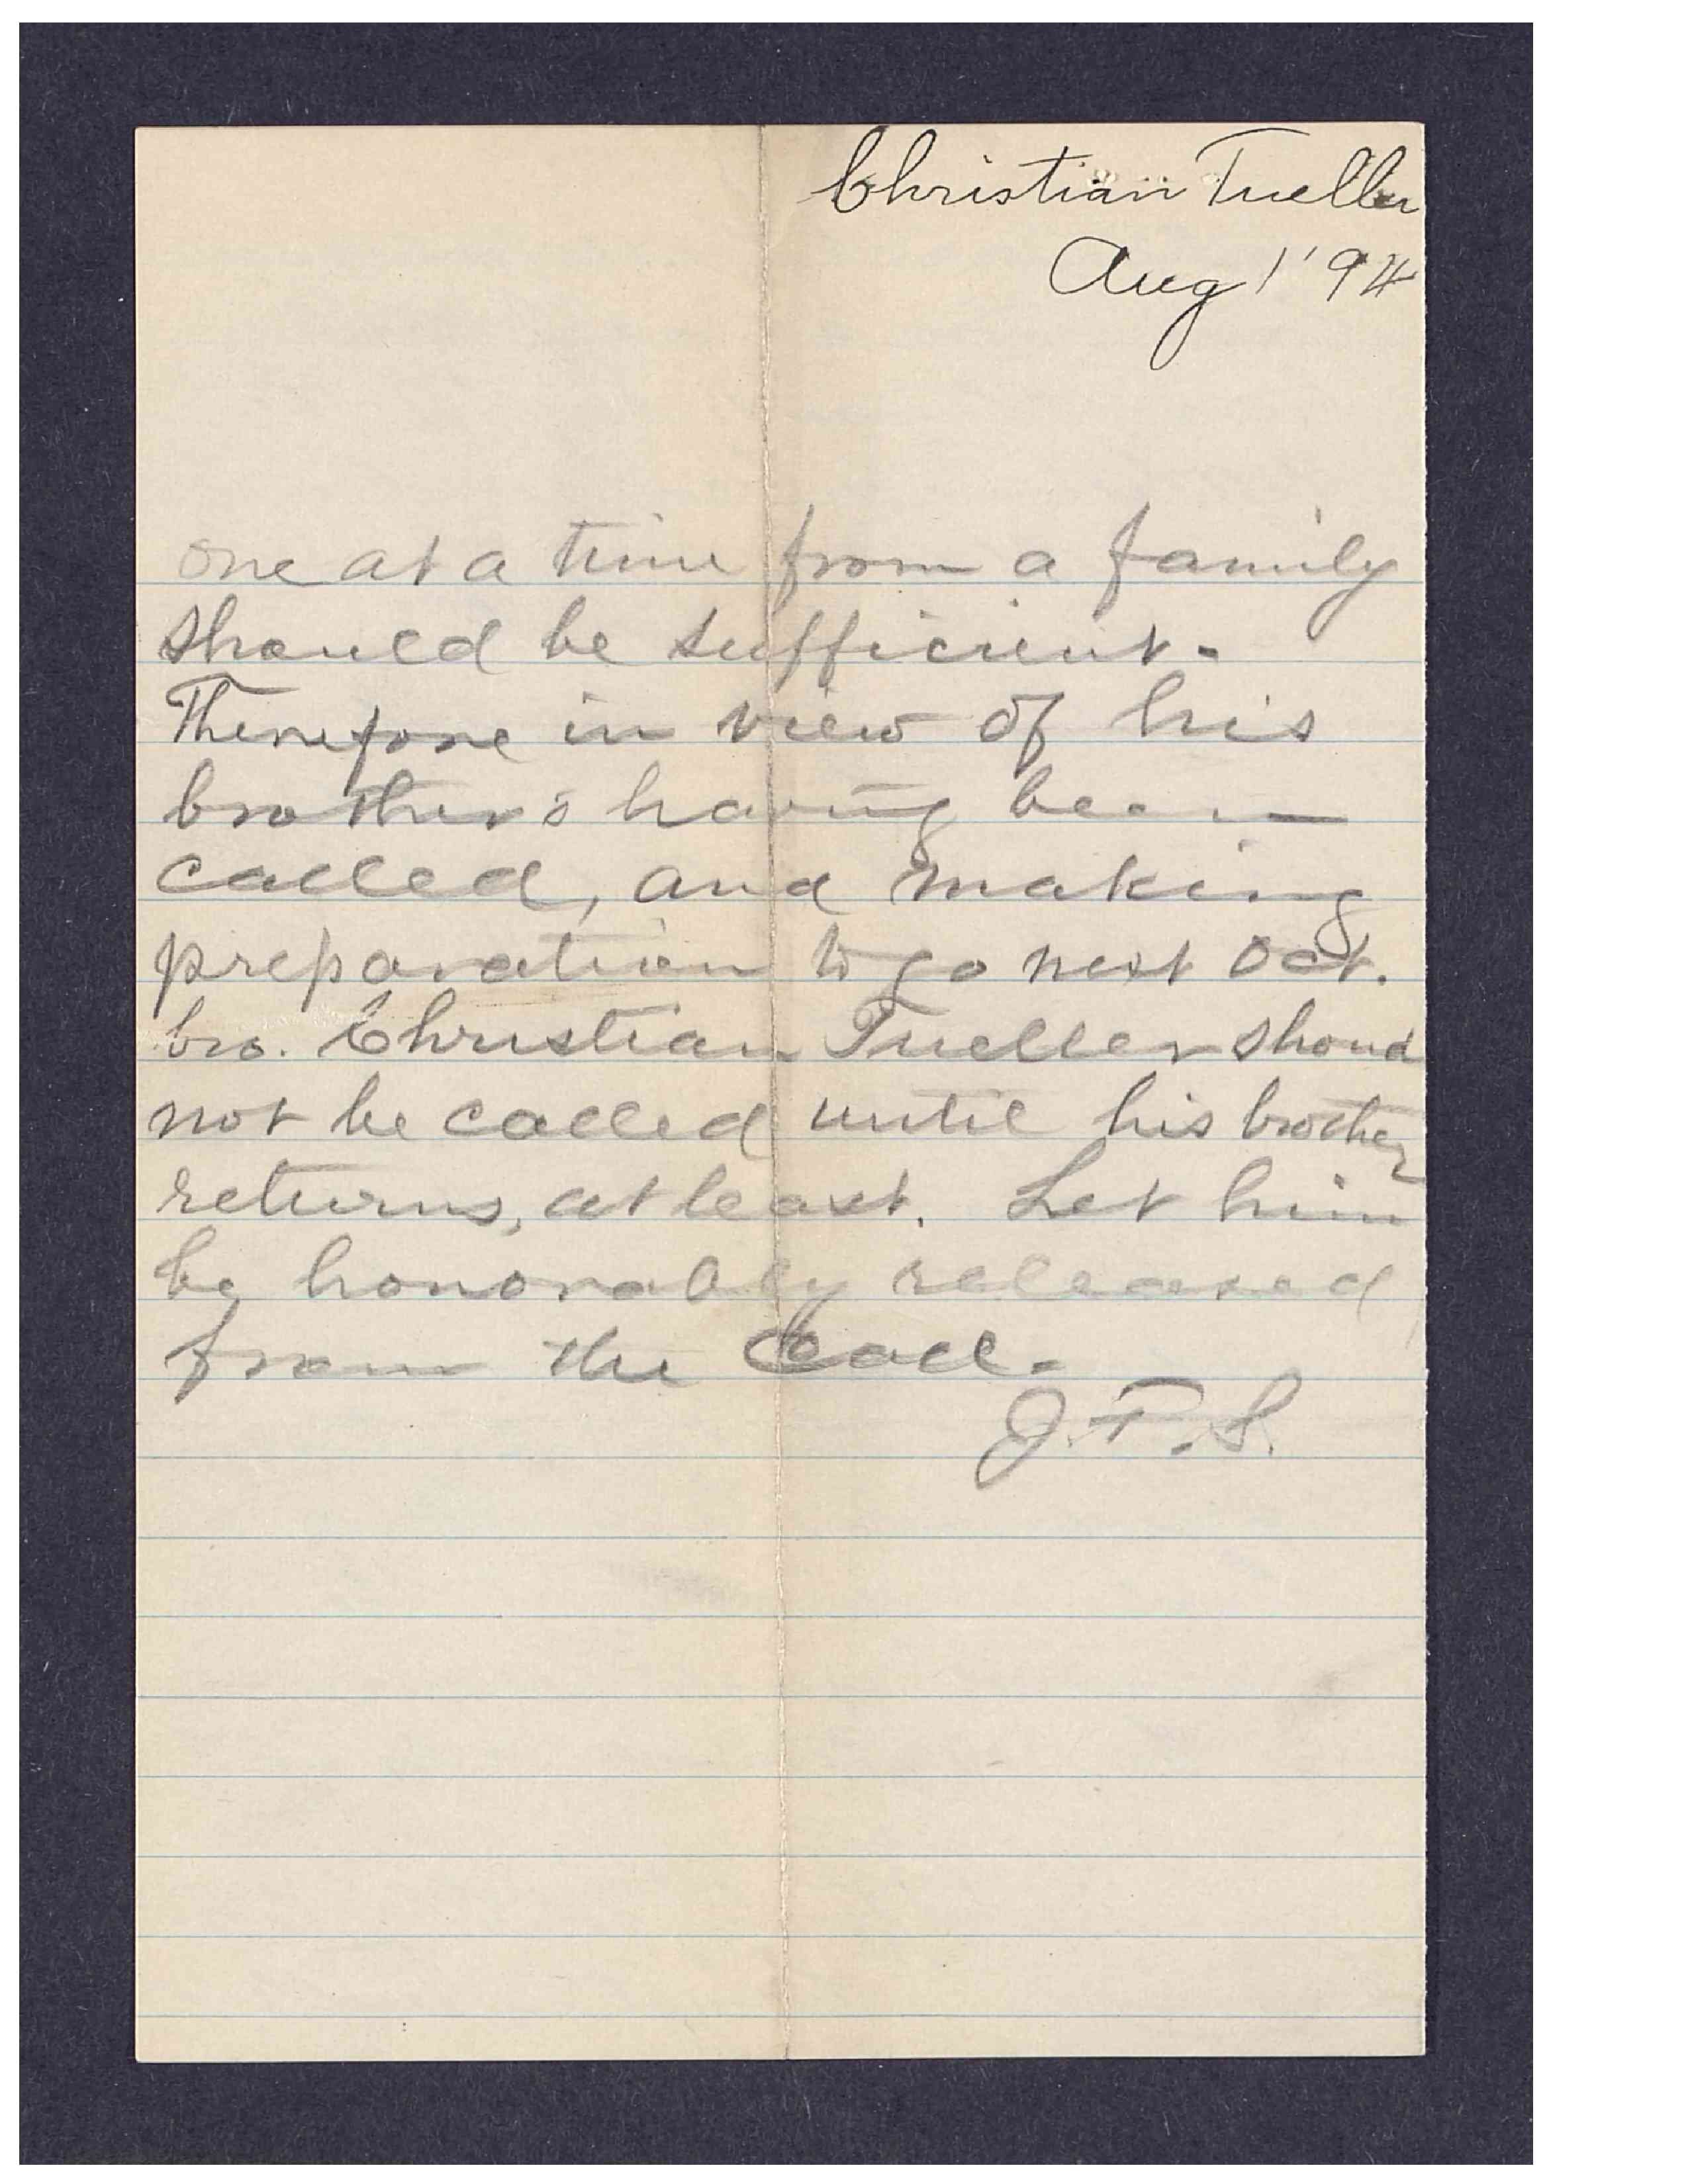 Christian Tueller
Aug 1 '94
one at a time from a family
should be sufficient.
Therefore in view of his
brother's having been
called, and making
preparation to go next Oct.
bro. Christian Tueller shoud
not be called until his brother
returns, at least. Let him
be honorably released
from the Call.
J. F. S.